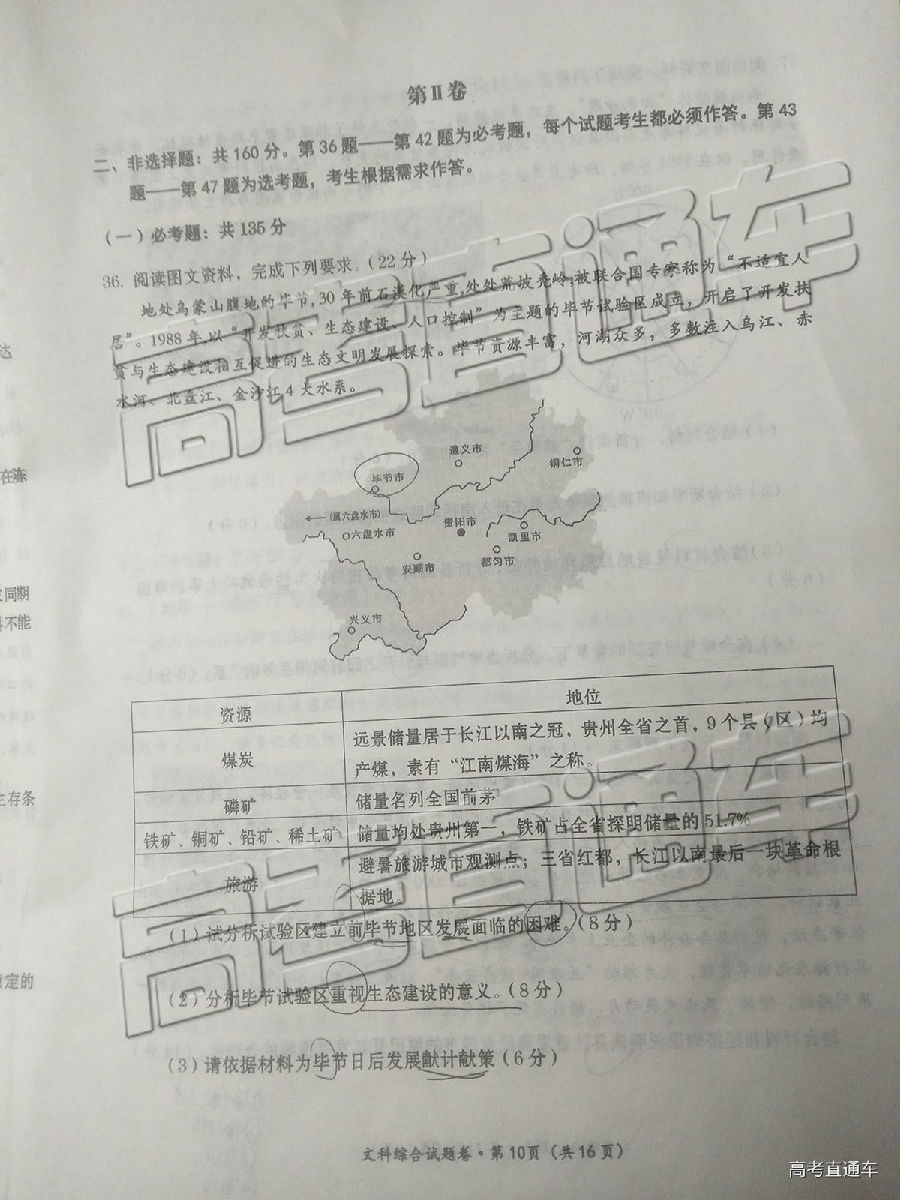 第Ⅱ卷
二、非选择题：共160分。第36题——第42题为必考题，每个试题考生都必须作答。第43
题——第47题为选考题，考生根据需求作答。
（一）必考题：共135分
36. 阅读图文资料，完成下列要求。（22分）
地处乌蒙山腹地的毕节，30年前石漠化严重，处处荒坡秃岭，被联合国专家称为“不适宜人
居”。1988年，以“开发扶贫、生态建设、人口控制”为主题的毕节试验区成立，开启了开发扶
贫与生态建设相互促进的生态文明发展探索。毕节资源丰富，河湖众多，多数注入乌江、赤
水河、北盘江、金沙江4大水系。
遵义市
铜仁市
毕节市
(属六盘水市)
贵阳市
六盘水市
凯里市
都匀市
安顺市
兴义市
资源 地位
煤炭 远景储量居于长江以南之冠，贵州全省之首，9个县（区）均
产煤，素有“江南煤海”之称。
磷矿 储量名列全国前茅
铁矿、铜矿、铅矿、稀土矿 储量均处贵州第一，铁矿占全省探明储量的51.7%
旅游 避暑旅游城市观测点；三省红都，长江以南最后一块革命根
据地。
（1）试分析试验区建立前毕节地区发展面临的困难。（8分）
（2）分析毕节试验区重视生态建设的意义。（8分）
（3）请依据材料为毕节日后发展献计献策（6分）
文科综合试题卷·第10页（共16页）
高考直通车
高考直通车
高考直通车
达
在陈
同期
不能
生存条
稳定的